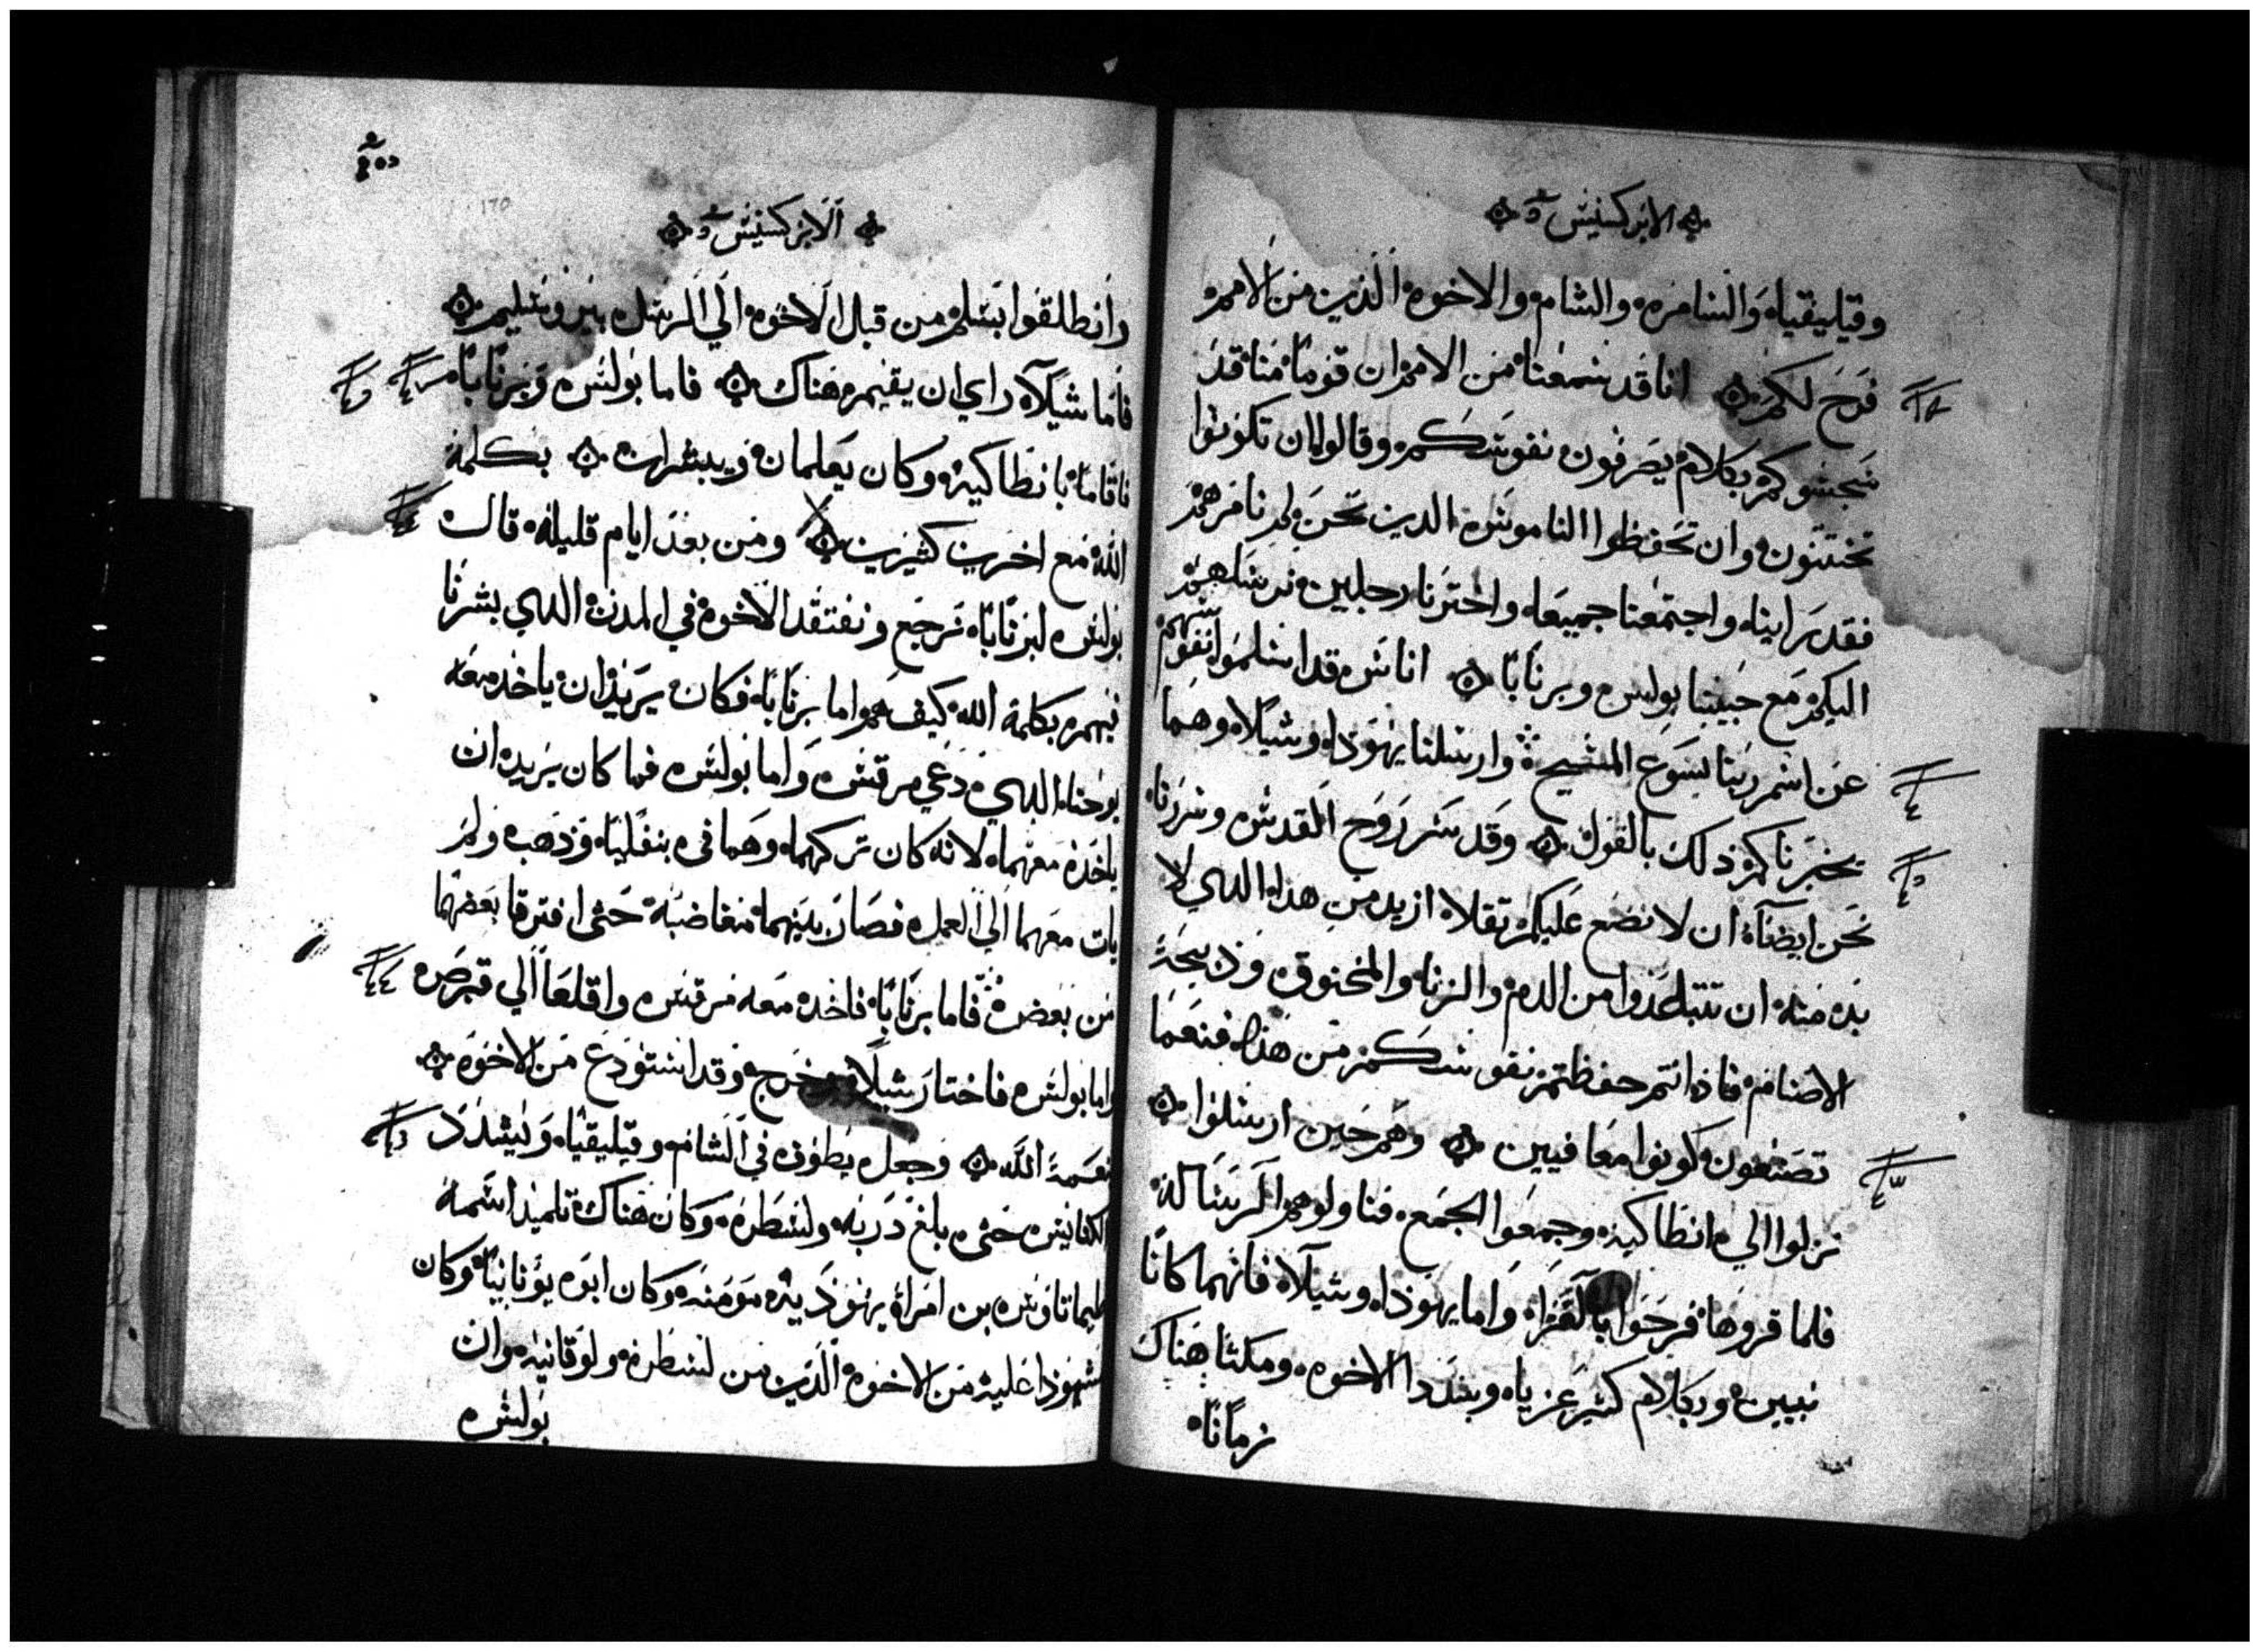 الابركسيس
وقيليقياه والسامره والشام والاخوه الذين من الامم
فرح لكم انا قد سمعنا من الامم ان قوما منا قد
سجسوكم بكلام يصرفون نفوسكم وقالوا ان تكونوا
تختتنون وان تحفظوا الناموس الدين نحن لم نامرهم
فقد راينا واجتمعنا جميعا واخترنا رجلين نرسلهم
اليكم مع حبيبنا بولس وبرنابا اناس قد اسلموا نفوسهم
عن اسم ربنا يسوع المسيح وارسلنا يهوذا وشيلا وهما
يخبرناكم ذلك بالقول وقد سر روح القدس وسررنا
نحن ايضا ان لا نضع عليكم تقلا ازيد من هذا الدي لا
بد منه ان تتباعدوا من الدم والزنا والمخنوق وذبيحة
الاصنام فاذا انتم حفظتم نفوسكم من هذا فنعما
تصنعون كونوا معافيين وهم حين ارسلوا
نزلوا الي انطاكيه وجمعوا الجمع فناولوهم الرساله
فلما قروها فرحوا بالعزا واما يهوذا وشيلا فانهما كانا
نبيين وبكلام كثير عزياه وشددا الاخوه ومكثا هناك
زمانا
الابركسيس
وانطلقوا بسلم من قبل الاخوه الي الرسل بيروشليم
فاما شيلا راي ان يقيم هناك فاما بولس وبرنابا
فاقاما بانطاكيه وكان يعلمان ويبشران بكلمة
الله مع اخرين كثيرين ومن بعد ايام قليله قال
بولس لبرنابا نرجع ونفتقد الاخوه في المدن الدي بشرنا
فيهم بكلمة الله كيف هم واما برنابا فكان يريد ان ياخد معه
يوحنا الدي دعي مرقس واما بولس فما كان يريد ان
ياخد معهما لانه كان تركهما وهما في بنفليا وذهب ولم
يات معهما الي العمل فصار بينهما مغاضبة حتى افترقا بعضهما
من بعض فاما برنابا فاخد معه مرقس واقلعا الي قبرص
واما بولس فاختار شيلا وخرج وقد استودع من الاخوه
نعمة الله وجعل يطوف في الشام وقيليقيا ويشدد
الكنايس حتى بلغ دربه ولسطره وكان هناك تلميد اسمه
طيماتاوس بن امراة يهوديه مومنه وكان ابوه يونانيا وكان
شهودا عليه من الاخوه الذين من لسطره ولوقانيه وان
بولس